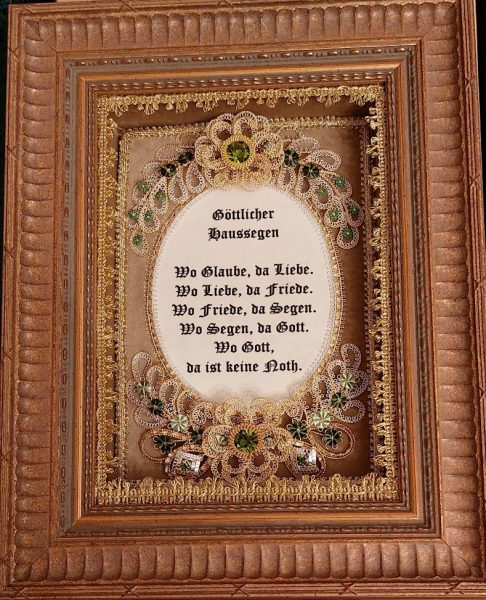 Göttlicher
Haussegen
Wo Glaube, da Liebe.
Wo Liebe, da Friede.
Wo Friede, da Segen.
Wo Segen, da Gott.
Wo Gott,
da ist keine Noth.